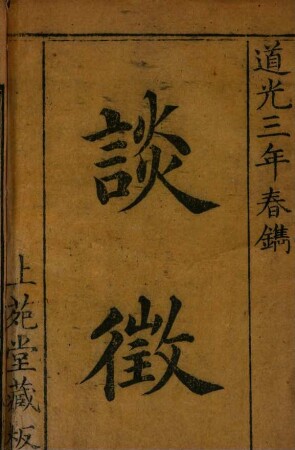 道光三年春鐫
談徵
上苑堂藏板